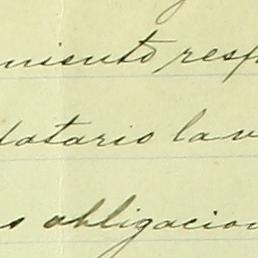 miento resp
datario la v
s obligacion